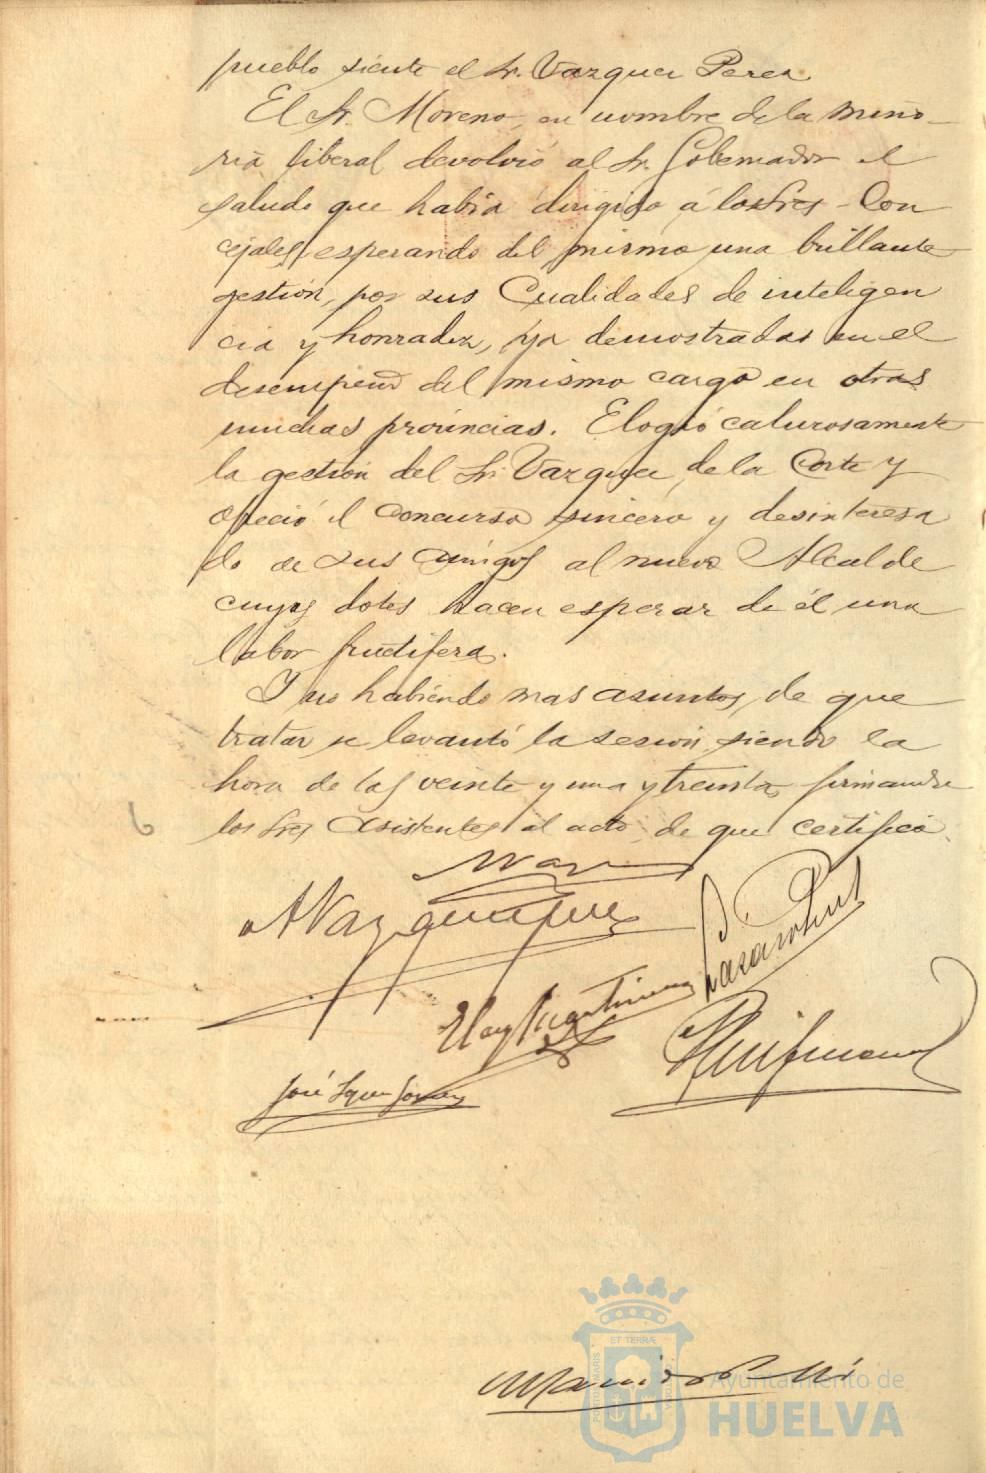 pueblo siente el Sr. Vazquez Perez
El Sr. Moreno, en nombre de la mino-
ria liberal devolvió al Sr. Gobernador el
saludo que habia dirigido á los Sres Con
cejales, esperando del mismo una brillante
gestión, por sus Cualidades de inteligen
cia y honradez, ya demostradas en el
desempeño del mismo cargo en otras
muchas provincias. Elogió calurosamente
la gestión del Sr. Vazquez de la Corte y
ofreció el Concurso sincero y desinteresa
do de sus amigos al nuevo Alcalde
cuyas dotes hacen esperar de él una
labor fructifera.
Y no habiendo mas asuntos, de que
tratar, se levantó la sesion siendo la
hora de las veinte y una y treinta, firmando
los Sres Asistentes al acto de que certifico.
A Vazquez Perez
Eloy Martinez
6
ET TERRÆ
PORTUS MARIS
CUSTODIA
Ayuntamiento de
HUELVA